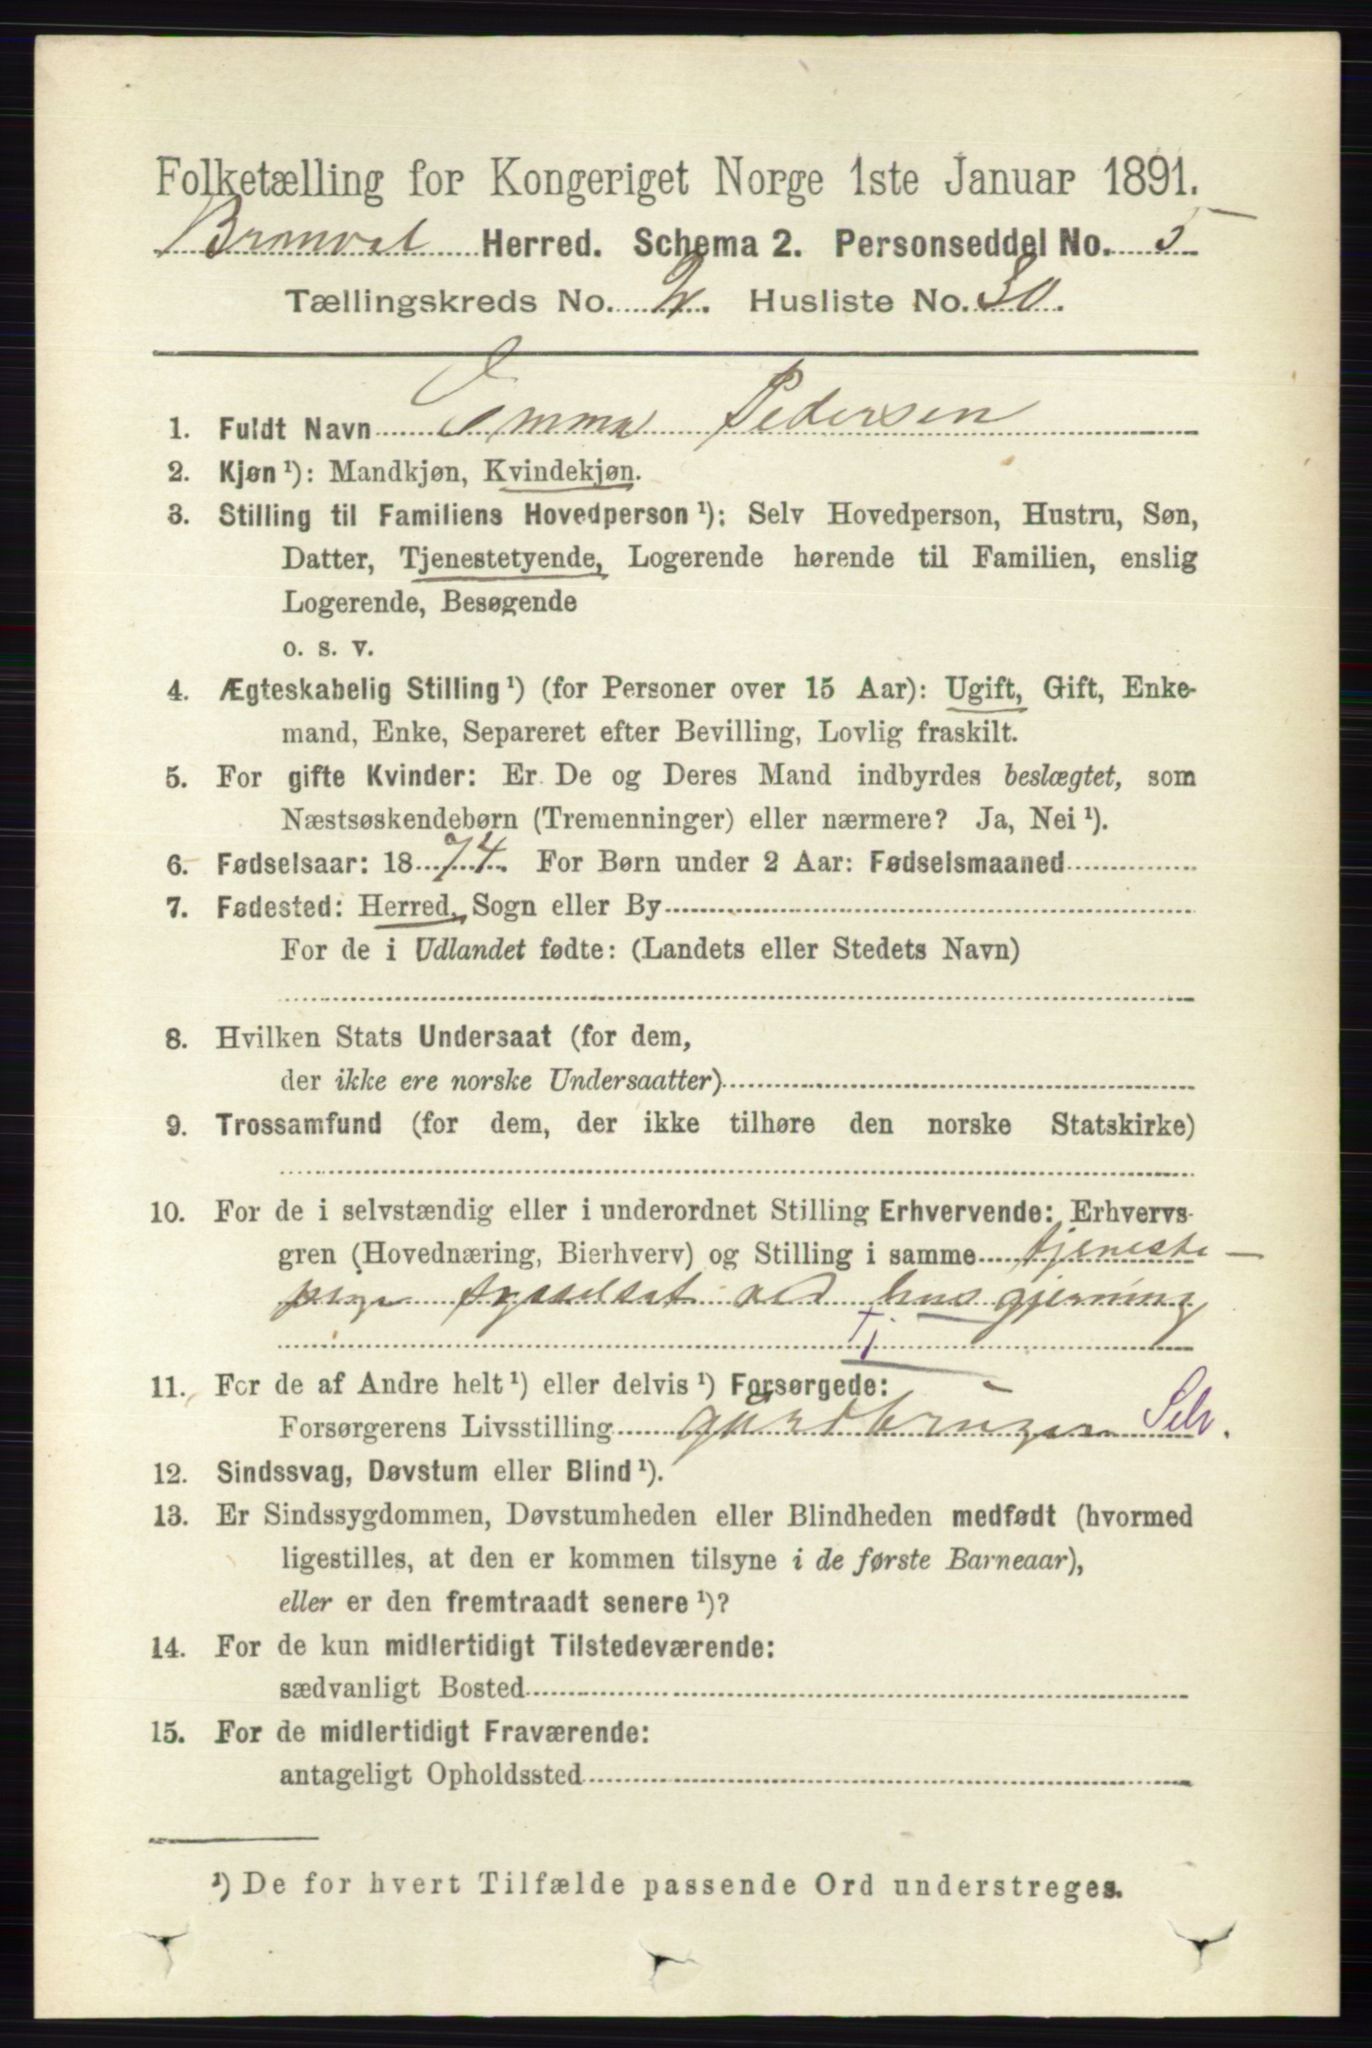 Folketælling for Kongeriget Norge 1ste Januar 1891.
Herred. Schema 2. Personseddel No. 5
Tællingskreds No. 2. Husliste No. 30.
1. Fuldt Navn Emma Pedersen
2. Kjøn¹): Mandkjøn, Kvindekjøn.
3. Stilling til Familiens Hovedperson¹): Selv Hovedperson, Hustru, Søn,
Datter, Tjenestetyende, Logerende hørende til Familien, enslig
Logerende, Besøgende
o. s. v.
4. Ægteskabelig Stilling¹) (for Personer over 15 Aar): Ugift, Gift, Enke-
mand, Enke, Separeret efter Bevilling, Lovlig fraskilt.
5. For gifte Kvinder: Er De og Deres Mand indbyrdes beslægtet, som
Næstsøskendebørn (Tremenninger) eller nærmere? Ja, Nei¹).
6. Fødselsaar: 1874. For Børn under 2 Aar: Fødselsmaaned
7. Fødested: Herred, Sogn eller By
For de i Udlandet fødte: (Landets eller Stedets Navn)
8. Hvilken Stats Undersaat (for dem,
der ikke ere norske Undersaatter)
9. Trossamfund (for dem, der ikke tilhøre den norske Statskirke)
10. For de i selvstændig eller i underordnet Stilling Erhvervende: Erhvervs-
gren (Hovednæring, Bierhverv) og Stilling i samme tjeneste-
pige sysselsat ved husgjerning
Tj
11. For de af Andre helt¹) eller delvis¹) Forsørgede:
Forsørgerens Livsstilling gaardbruger Selv.
12. Sindssvag, Døvstum eller Blind¹).
13. Er Sindssygdommen, Døvstumheden eller Blindheden medfødt (hvormed
ligestilles, at den er kommen tilsyne i de første Barneaar),
eller er den fremtraadt senere¹)?
14. For de kun midlertidigt Tilstedeværende:
sædvanligt Bosted
15. For de midlertidigt Fraværende:
antageligt Opholdssted
¹) De for hvert Tilfælde passende Ord understreges.